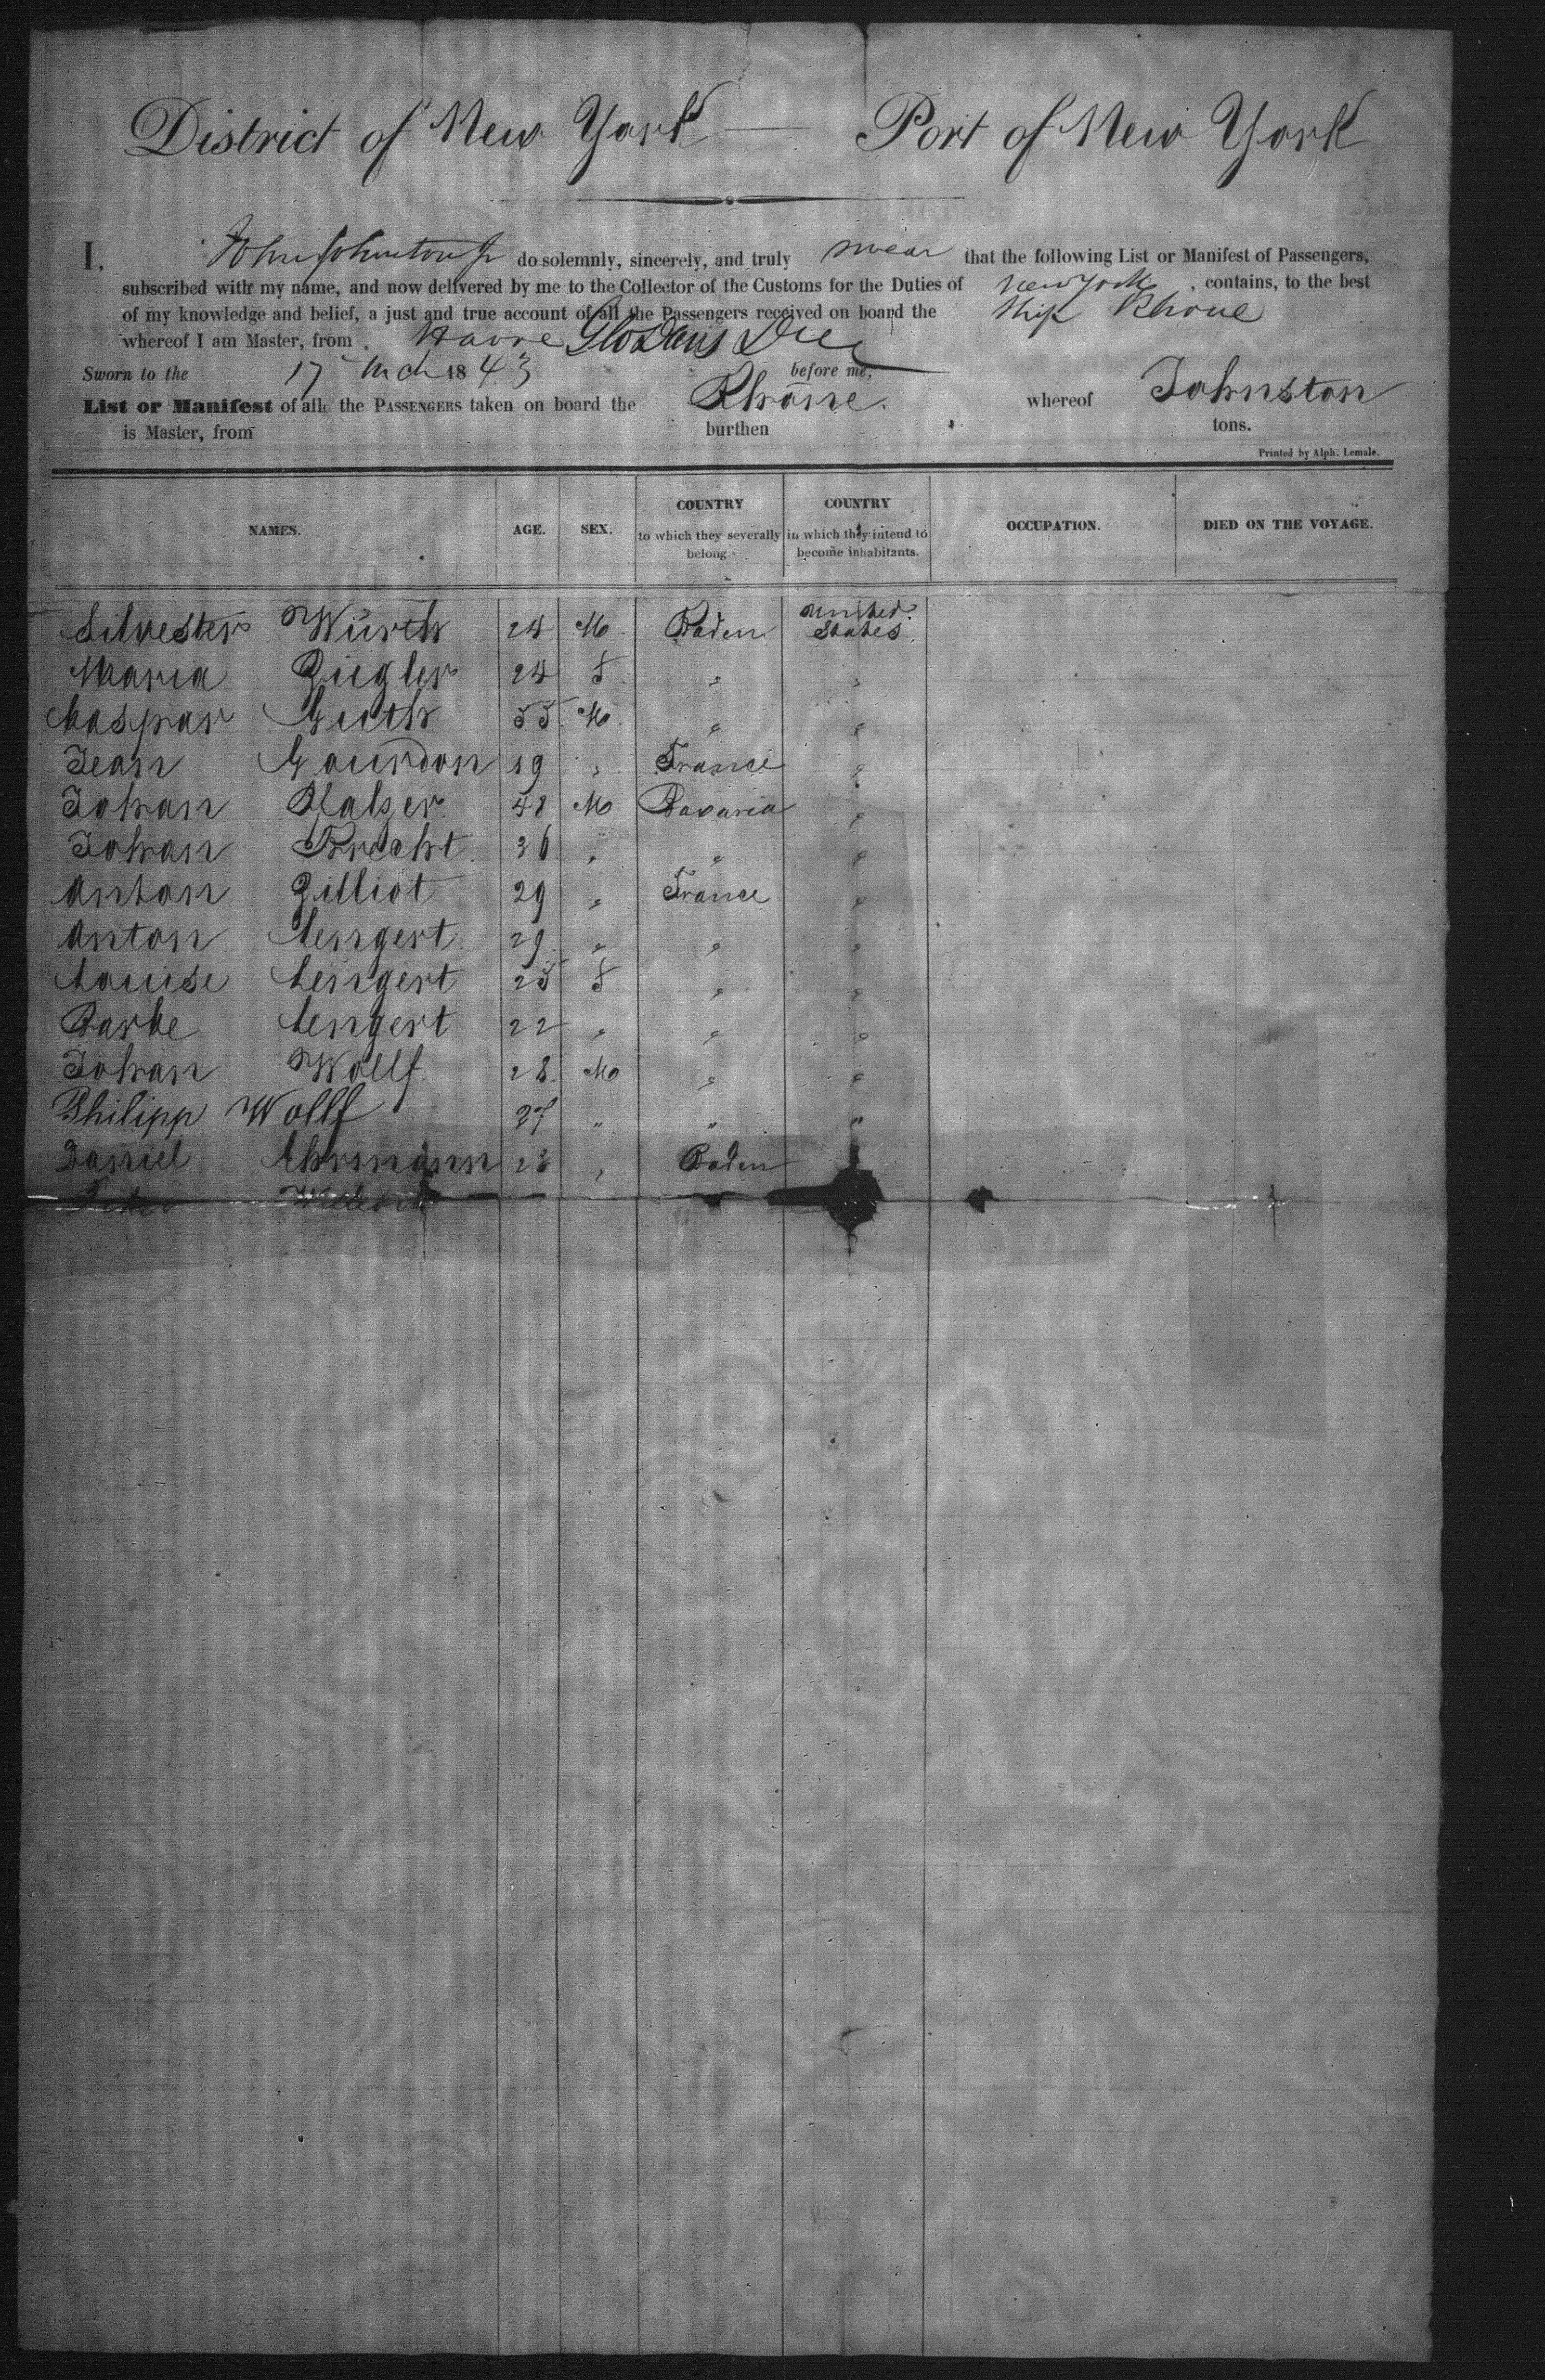 District of New York — Port of New York
I, John Johnston Jr do solemnly, sincerely, and truly swear that the following List or Manifest of Passengers,
subscribed with my name, and now delivered by me to the Collector of the Customs for the Duties of New York, contains, to the best
of my knowledge and belief, a just and true account of all the Passengers received on board the Ship Rhone
whereof I am Master, from Havre
Sworn to the 17 Mch 1843 before me,
List or Manifest of all the PASSENGERS taken on board the Rhone. whereof Johnston
is Master, from burthen tons.
Printed by Alph. Lemale.
NAMES. AGE. SEX. COUNTRY to which they severally belong COUNTRY in which they intend to become inhabitants. OCCUPATION. DIED ON THE VOYAGE.
Silvester Würth 24 M Baden United States
Maria Ziegler 24 f " "
Caspar Guth 55 M " "
Jean Gourdon 19 " France "
Johan 48 M Bavaria "
Johan Knecht 36 " " "
Anton Zilliot 29 " France "
Anton Lengert 29 " " "
Louise Lengert 25 f " "
Barbe Lengert 22 " " "
Johan Wollf 28 M " "
Philipp Wollf 27 " " "
Daniel Ehrmann 28 " Baden